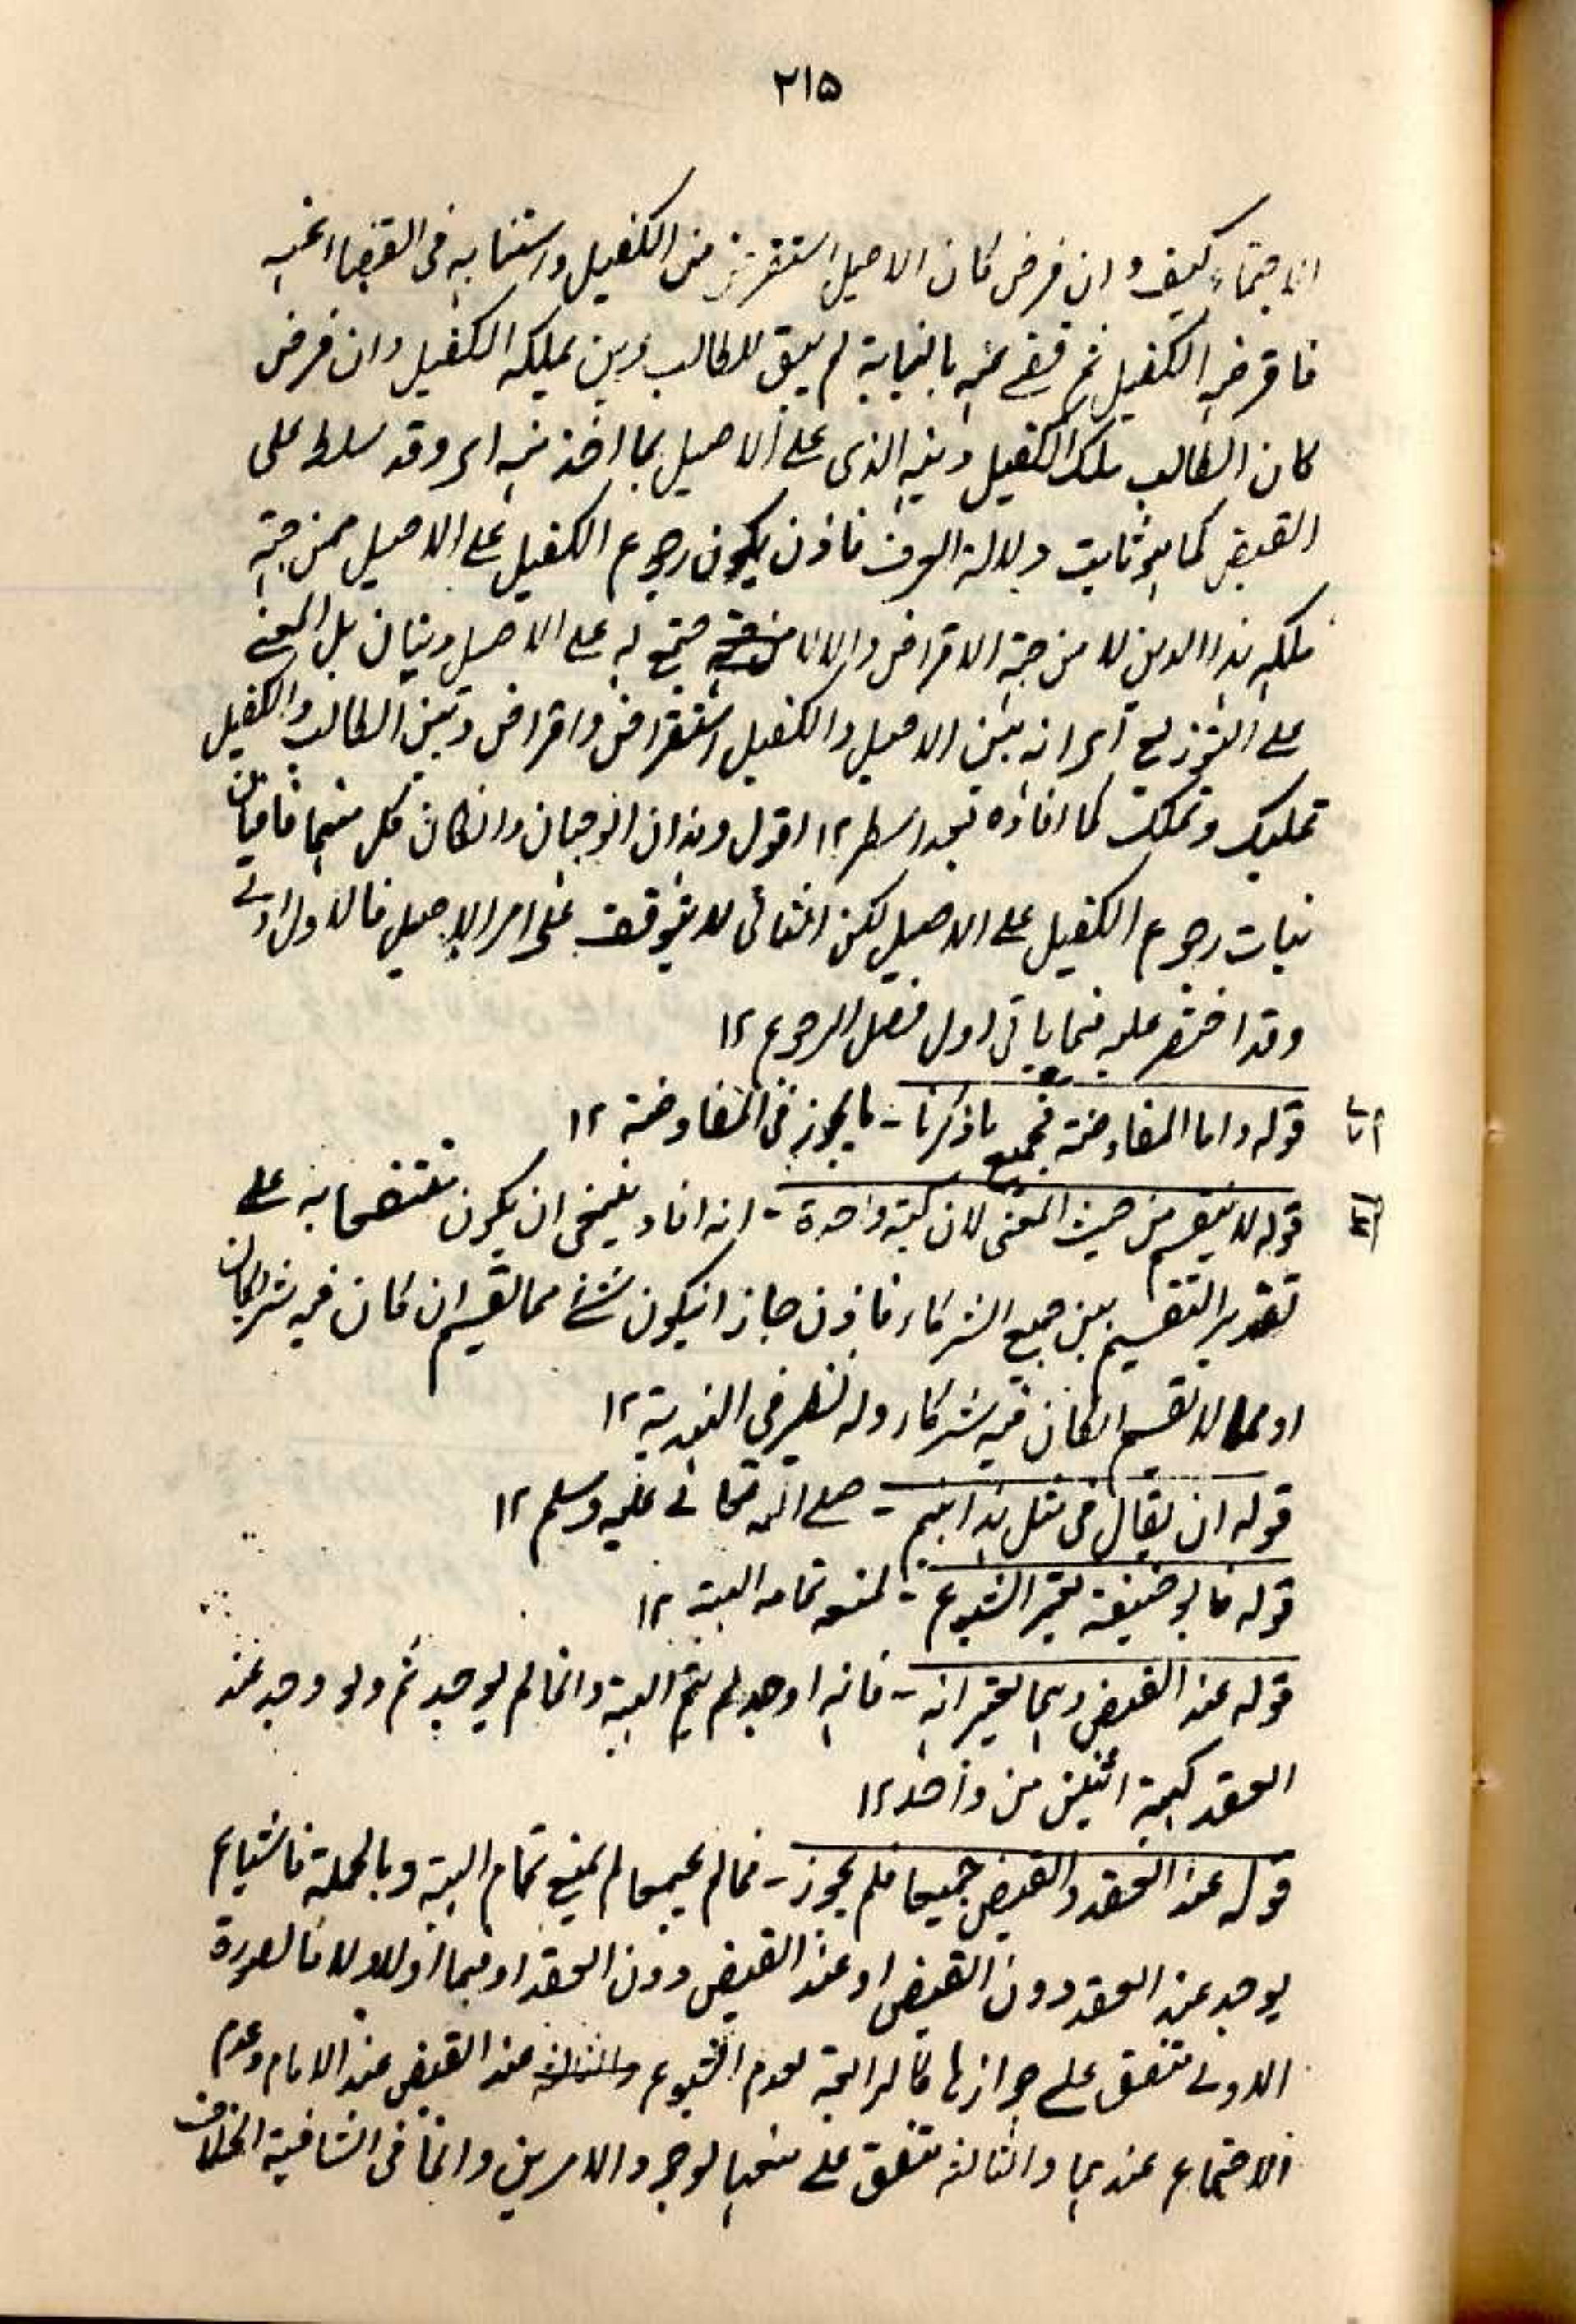 ٢١٥
الاجتماع كيف وان فرض كان الاصيل استقرض من الكفيل واستنابه فى القضاء عنه
فاقرضه الكفيل ثم قضى عنه بالنيابة لم يبق للطالب دين يملكه الكفيل وان فرض
كان الطالب ملك الكفيل دينه الذى على الاصيل بما اخذ منه اى وقد سلط على
القبض كما هو ثابت دلالة العرف فاذن يكون رجوع الكفيل على الاصيل من جهة
ملكه هذا الدين لا من جهة الاقراض والا لاجتمع له على الاصيل دينان بل المعنى
على التوزيع اى انه بين الاصيل والكفيل استقراض واقراض وبين الطالب والكفيل
تمليك وتملك كما افاده بعد اسطر ١٢ اقول وهذان الوجهان وان كان كل منهما
رجوع الكفيل على الاصيل لكن الثانى لا يتوقف على امر الاصيل فالاول اولى
وقد اختصر عليه فيما ياتى اول فصل الرجوع ١٢
قوله واما المفاوضة فجميع ماذكرنا - ما يجوز فى المفاوضة ١٢
قوله لا ينقسم من حيث المعنى لان كيته واحدة - انه افاد ينبغى ان يكون منتفعا به على
تقدير التقسيم بين جميع الشركاء فاذن جاز ان يكون شئ مما يقسم ان كان فيه شريكان
او مما لا يقسم ان كان فيه شركاء وله نظير فى الهندية ١٢
قوله ان يقال فى مثل هذا انهم - صلى الله تعالى عليه وسلم ١٢
قوله فابو حنيفة يعتبر الشيوع - لمنعه تمام الهبة ١٢
قوله عند القبض وهما يعتبرانه - فانه اوجد لم يتم الهبة وانما لم يوجد ثم ولو وجد عند
العقد كهبة اثنين من واحد ١٢
قوله عند العقد والقبض جميعا فلم يجوز - فما لم يجمعا لم يمنع تمام الهبة وبالجملة فالشياع
يوجد عند العقد دون القبض او عند القبض دون العقد او فيهما او لا ولا فالصورة
الاولى متفق على جوازها كالرابعة لعدم الشيوع عند القبض عند الامام وعدم
الاجتماع عندهما والثالثة متفق على منعها لوجود الامرين وانما فى الثانية الخلاف